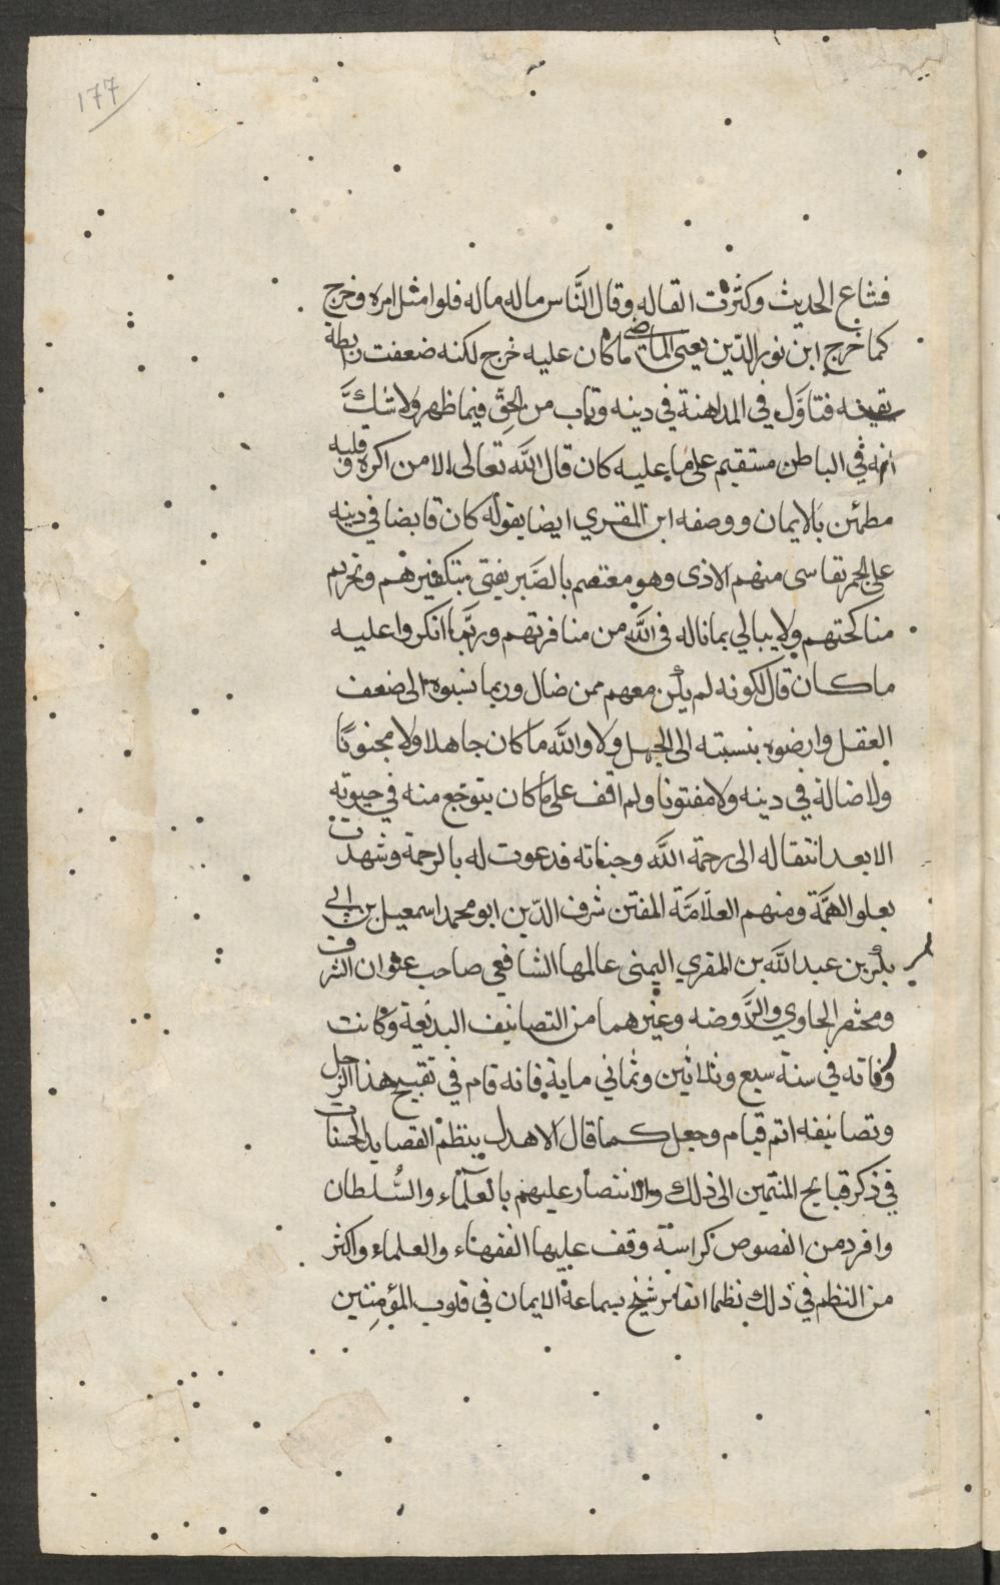 ١٧٧
فشاع الحديث وكثرت القاله وقال الناس ماله ماله فلوا مثل امره وخرج
كما خرج ابن نور الدّين يعني الماضي ما كان عليه خرج لكنه ضعفت رابطة
يقينه فتاوّل في المداهنة في دينه وتاب من الحقّ فيما ظهر ولا شكّ
انه في الباطن مستقيم على ما عليه كان قال الله تعالى الا من اكره وقلبه
مطمئن بالايمان ووصفه ابن المقري ايضا بقوله كان قابضا في دينه
على الجمر يقاسى منهم الاذى وهو معتصم بالصبر يفتى بتكفيرهم وتحريم
مناكحتهم ولا يبالي بما ناله في الله من منافرتهم وربّما انكروا عليه
ما كان قال لكونه لم يكن معهم ممن ضال وربما نسبوه الى ضعف
العقل وارضوه بنسبته الى الجهل ولا والله ما كان جاهلا ولا مجنونًا
ولا ضالة في دينه ولا مفتونا ولم اقف على ما كان يتوجع منه في حيوته
الا بعد انتقاله الى رحمة الله وجناته فدعوت له بالرحمة وشهدت
بعلو الهمّة ومنهم العلّامّة المفتن شرف الدّين ابو محمد اسمعيل بن ابي
بكر بن عبد الله بن المقري اليمنى عالمها الشافعي صاحب عنوان الشرف
ومختصر الحاوي والرّوضه وغيرهما من التصانيف البديعة وكانت
وفاته في سنة سبع وثلاثين وثماني ماية فانه قام في تقبيح هذا الرجل
وتصانيفه اتم قيام وجعل كما قال الاهدل ينظم القصايد الحسنات
في ذكر قبايح المنتمين الى ذلك والانتصار عليهم بالعلماء والسُّلطان
وافرد من الفصوص كراسة وقف عليها الفقهاء والعلماء واكثر
من النظم في ذلك نظما انفا شيخ بسماعة الايمان في قلوب المؤمنين